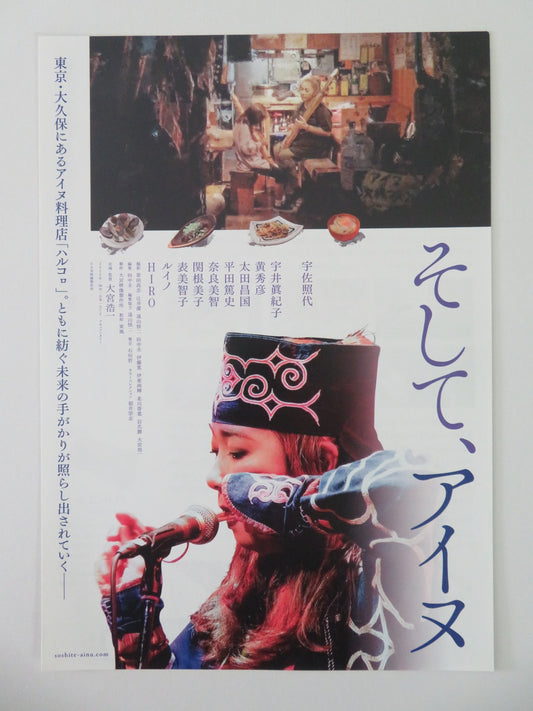 そして、アイヌ
宇佐照代
宇井眞紀子
黄秀彦
太田昌国
平田篤史
奈良美智
関根美子
ルイノ
表美智子
HIRO
大宮浩一
東京・大久保にあるアイヌ料理店「ハルコㇿ」。ともに紡ぐ未来の手がかりが照らし出されていく――
soshite-ainu.com